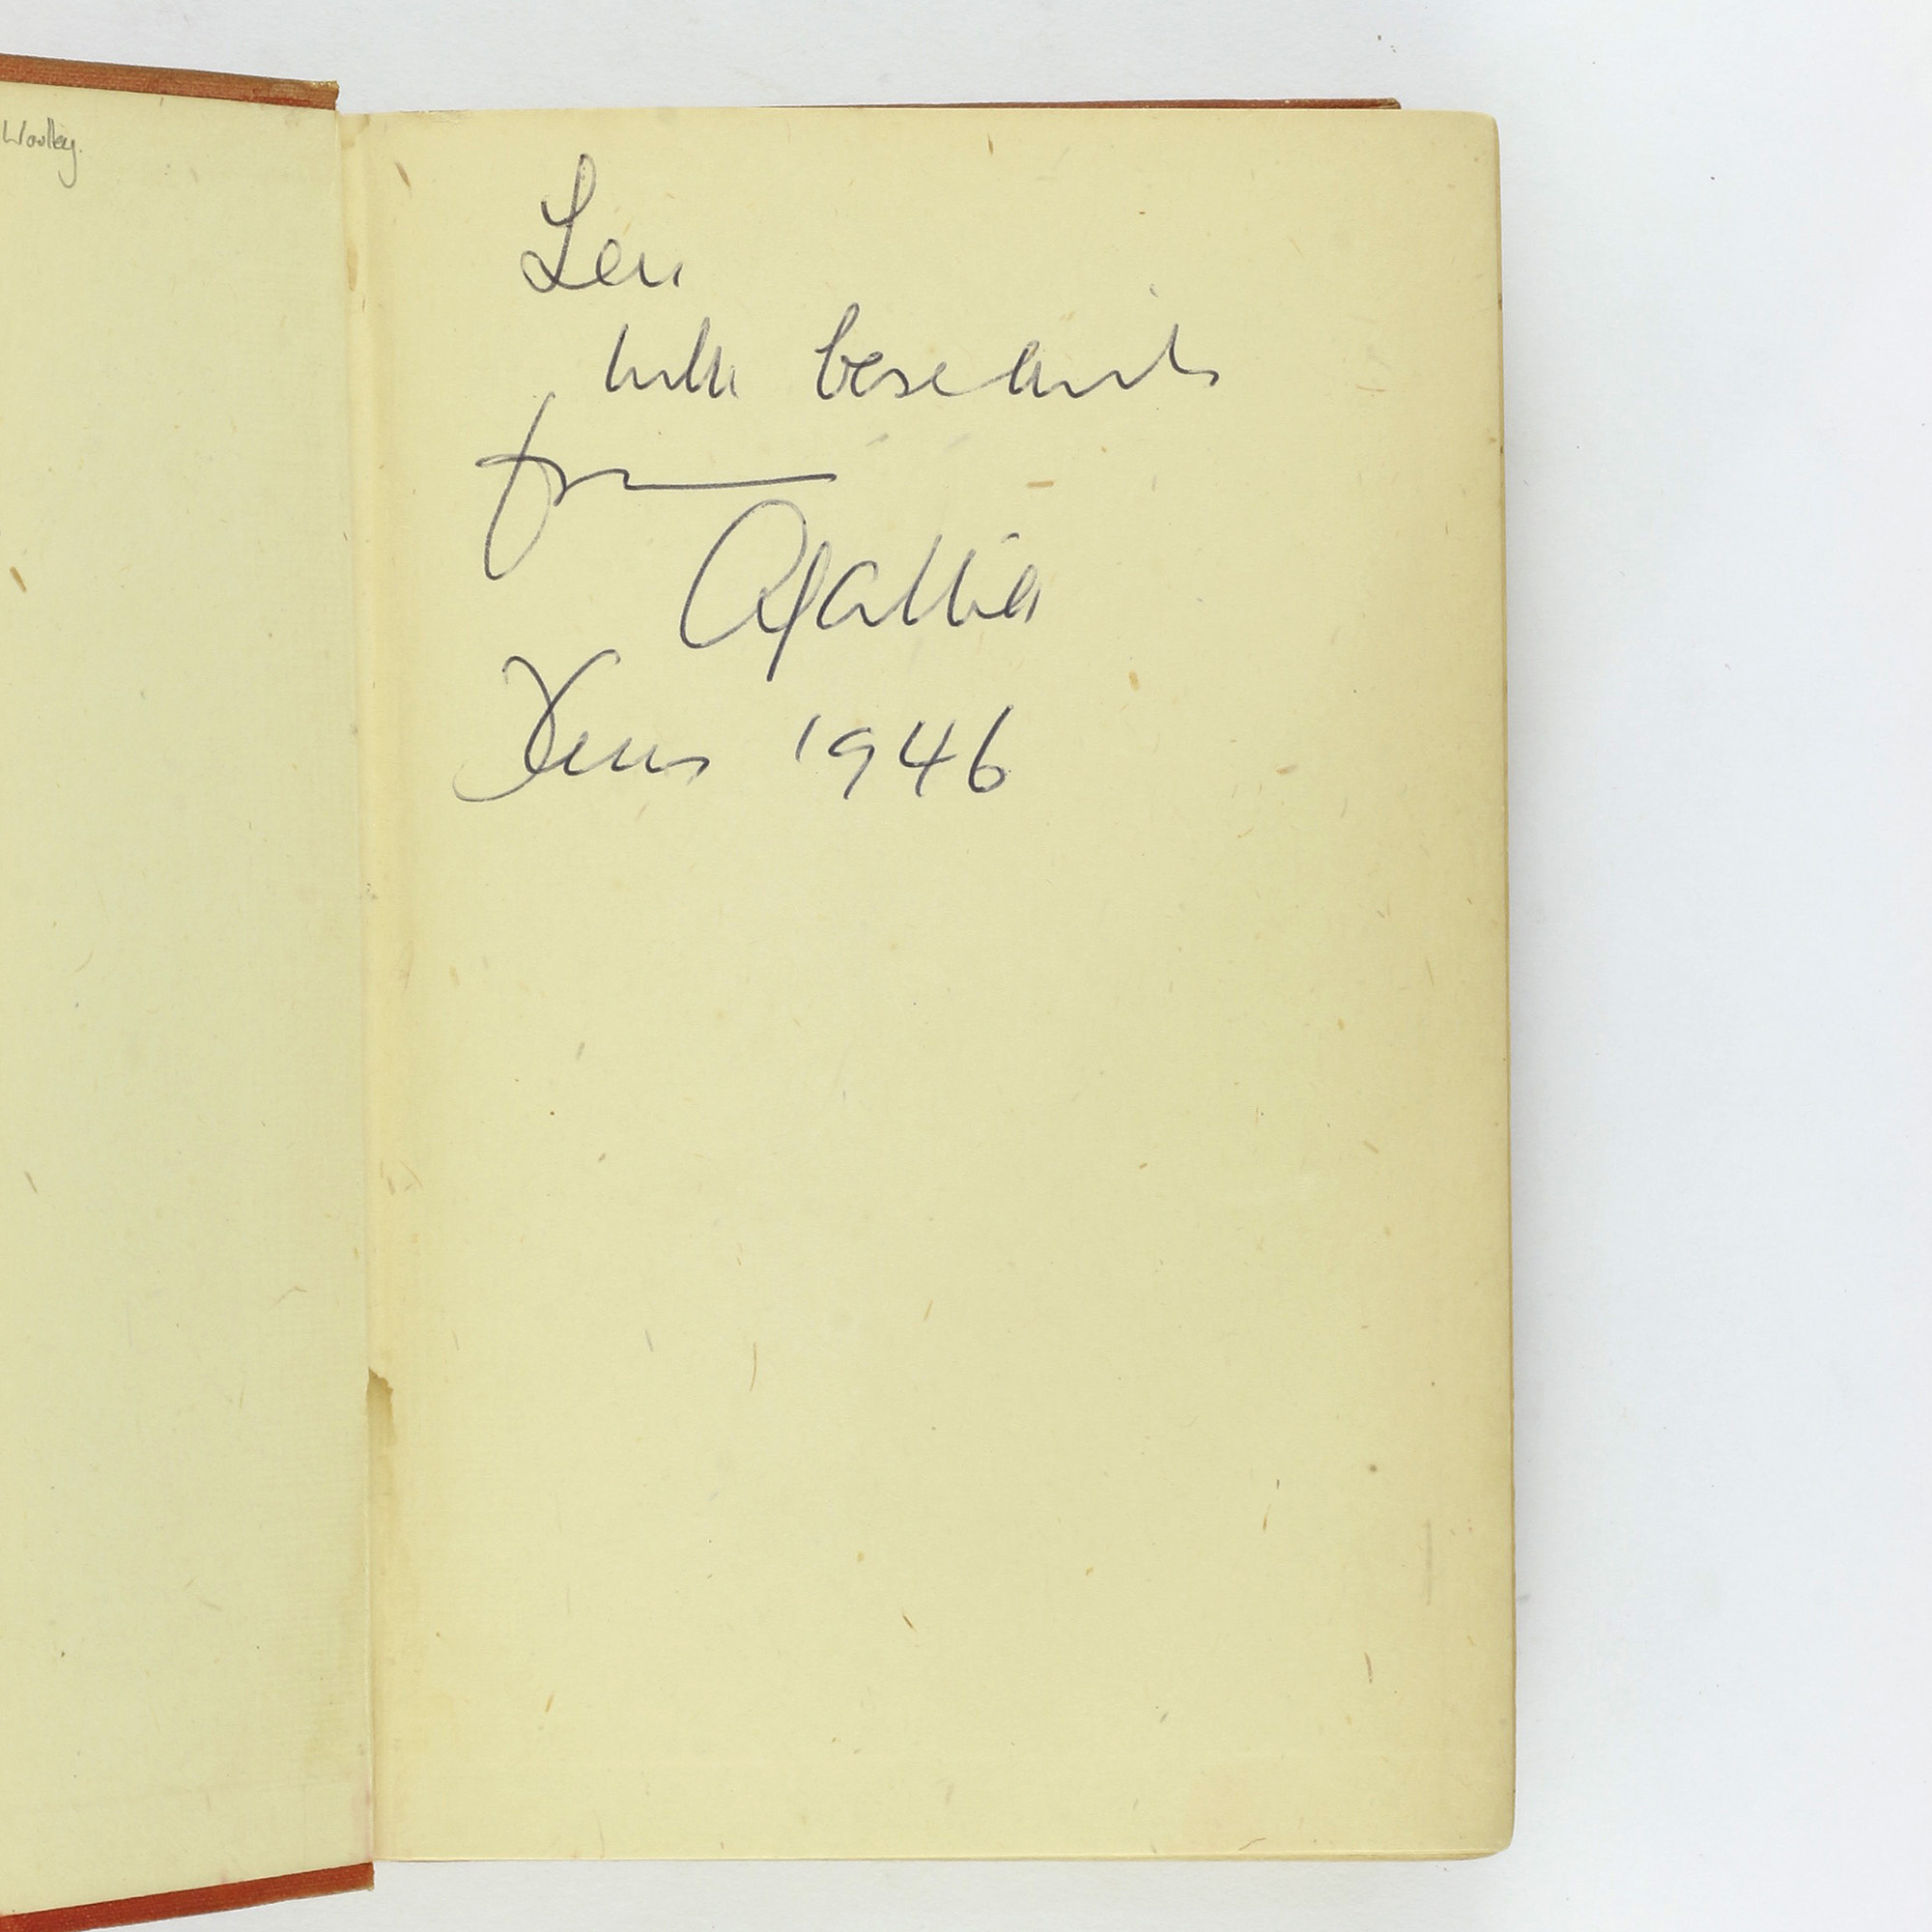 Woolley.
Len
with best wishes
from
Agatha
Xmas 1946